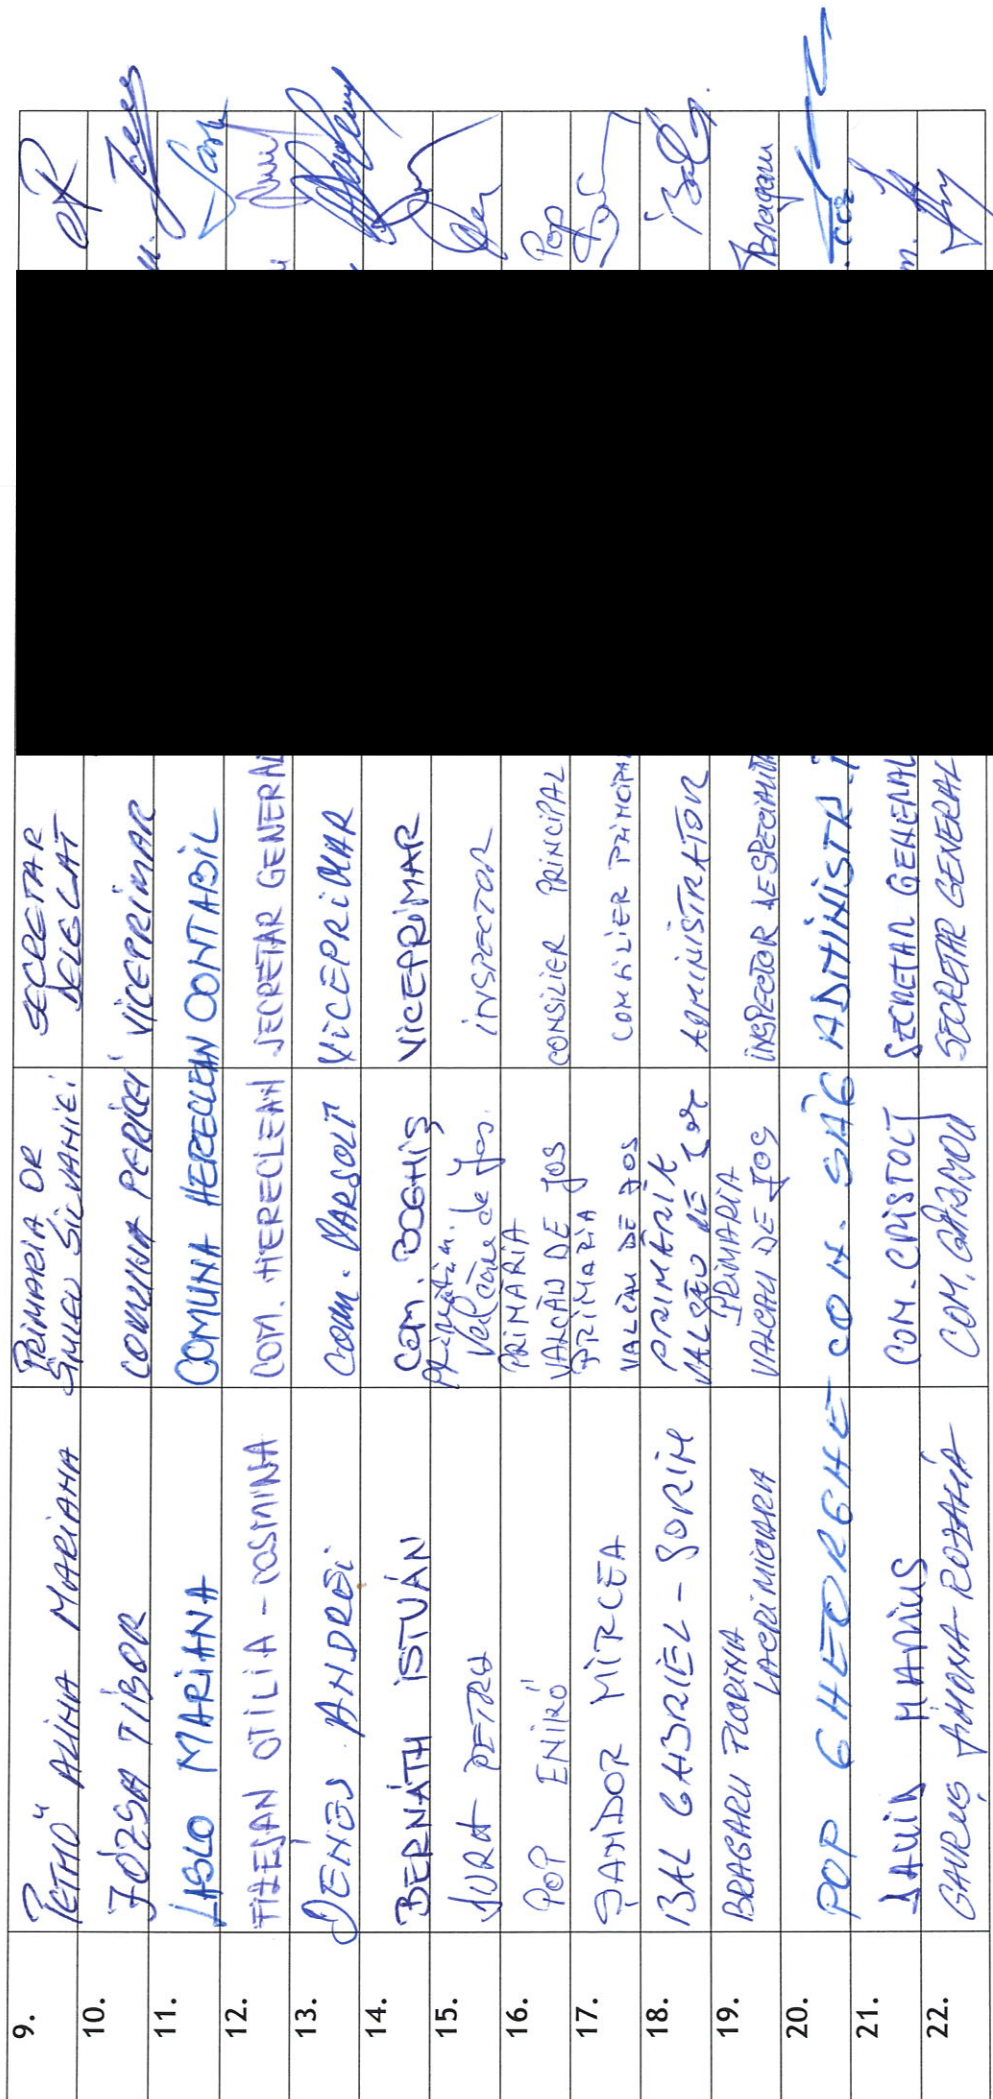 9. PETHŐ ALINA MARIANA PRIMARIA OR ȘIMLEU SILVANIEI SECRETAR DELEGAT
10. JÓZSA TIBOR COMUNA PERICEI VICEPRIMAR
11. LASLO MARIANA COMUNA HERECLEAN CONTABIL
12. OTILIA - COSMINA COM. HERECLEAN SECRETAR GENERAL
13. DÉNES ANDREI COM. VÂRȘOLȚ VICEPRIMAR
14. BERNÁTH ISTVÁN COM. BOGHIȘ VICEPRIMAR
15. JURA PETRU Valcău de Jos. INSPECTOR
16. POP ENIKŐ PRIMĂRIA VALCĂU DE JOS CONSILIER PRINCIPAL Pop
17. MIRCEA PRIMARIA VALCĂU DE JOS CONSILIER PRINCIPAL
18. BAL GABRIEL - SORIN PRIMĂRIA ADMINISTRATOR
19. FLORINA LĂCRĂMIOARA PRIMARIA VALCĂU DE JOS INSPECTOR DE SPECIALITATE
20. POP GHEORGHE COM. SÂG ADMINISTR
21. MARIUS COM. CRISTOLȚ SECRETAR GENERAL
22. GAVRUȘ COM. SECRETAR GENERAL